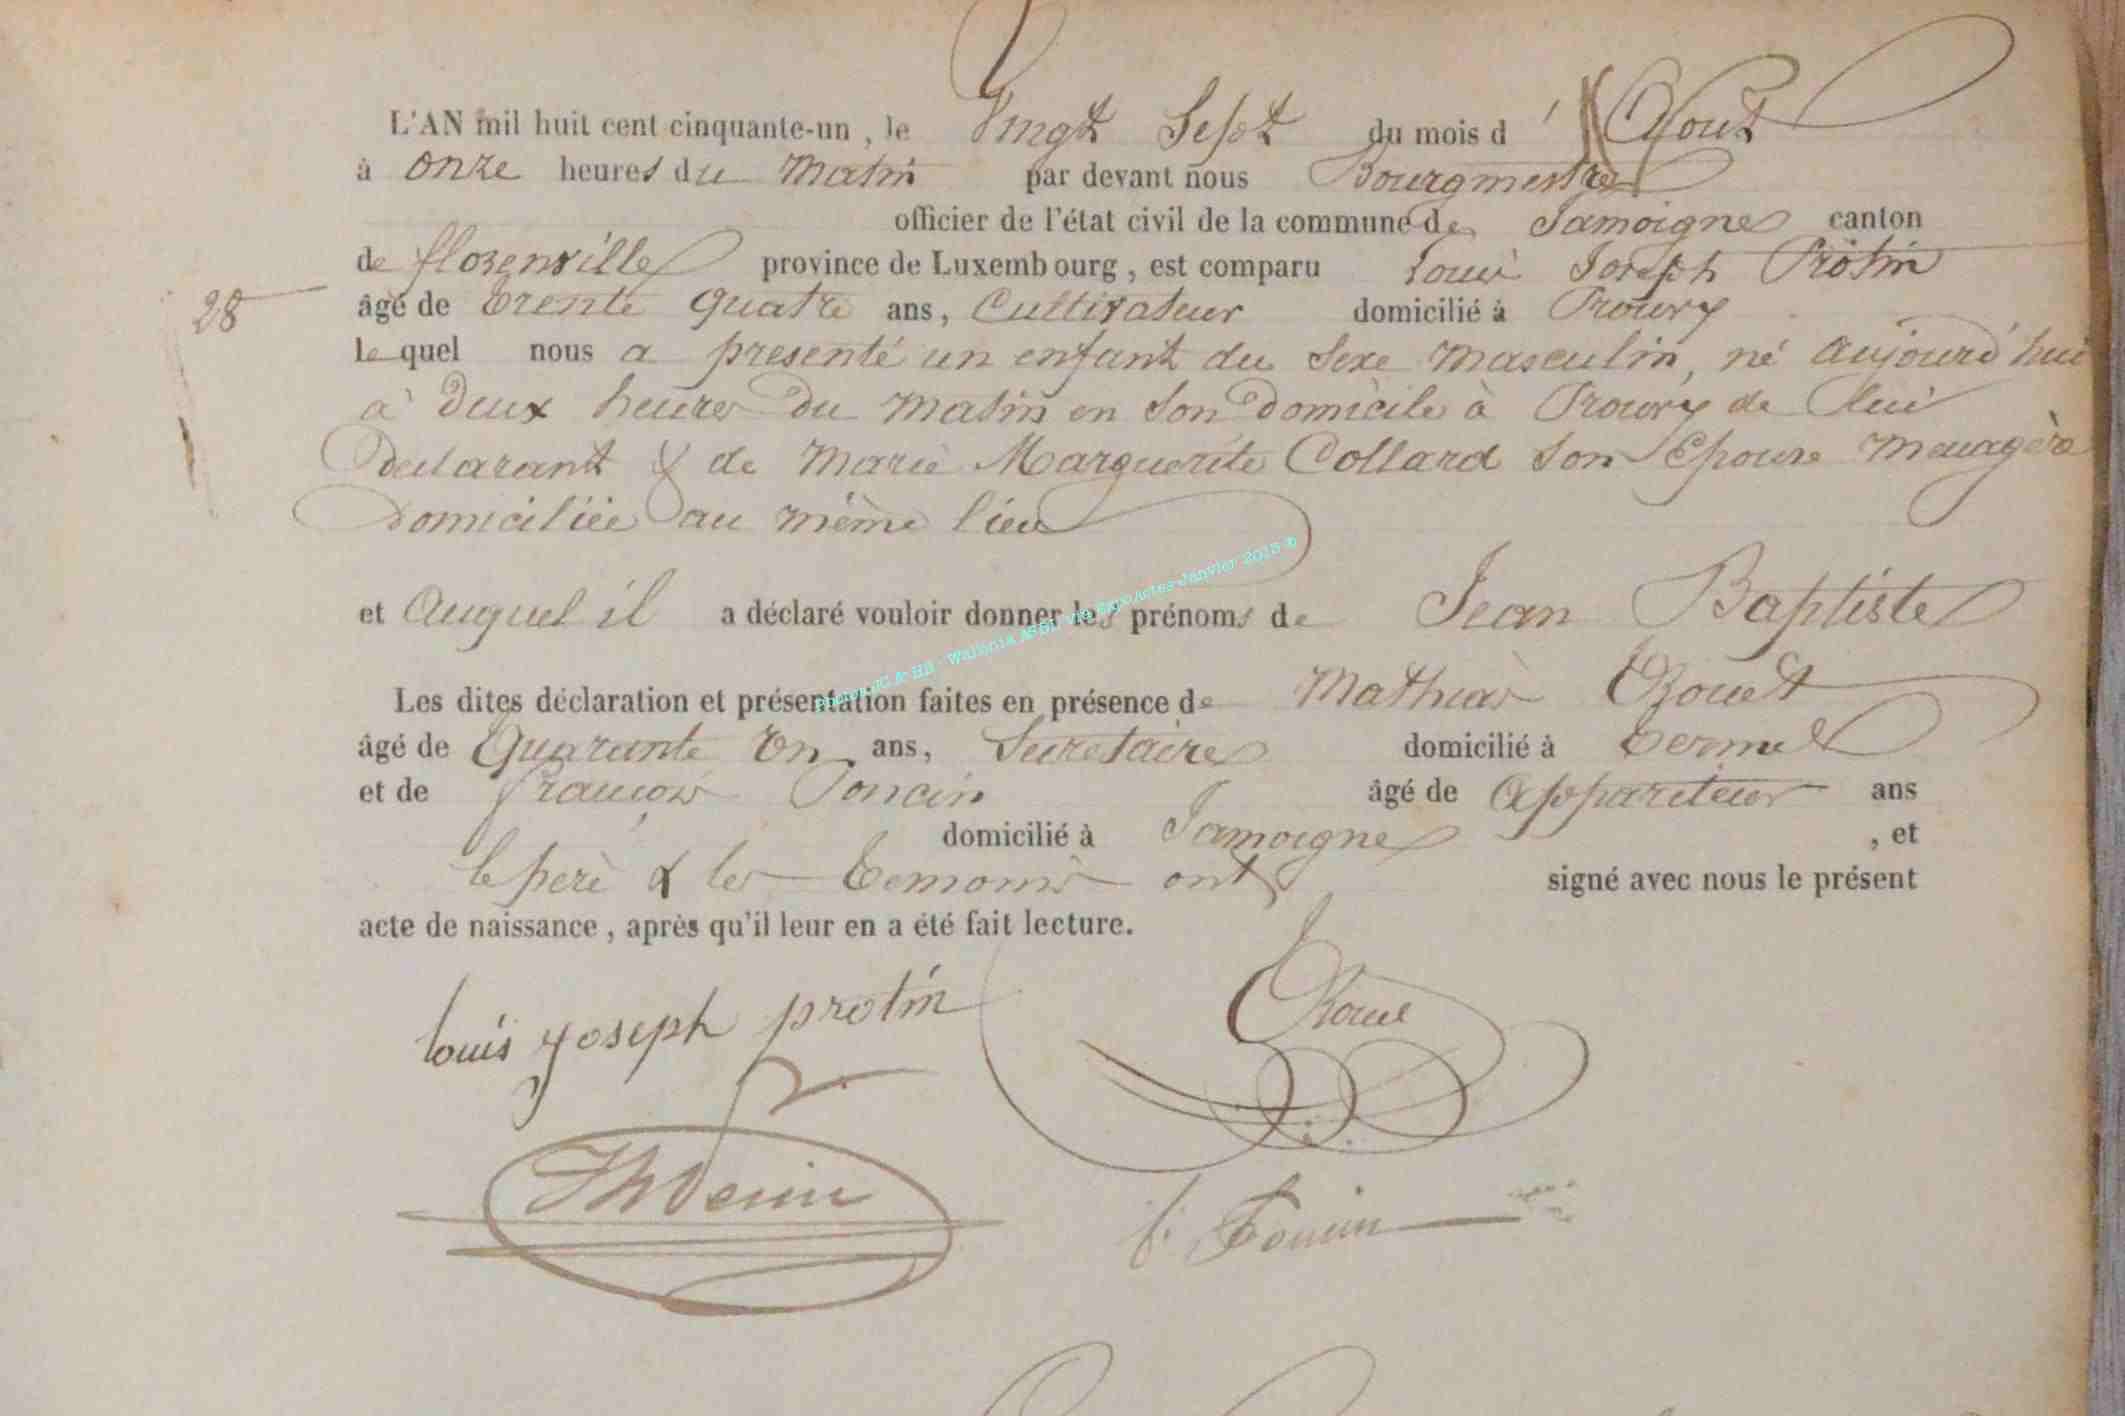 L'AN mil huit cent cinquante-un, le Vingt Sept du mois d'Aout
à onze heures du matin par devant nous Bourgmestre
officier de l'état civil de la commune de Jamoigne canton
de florenville province de Luxembourg, est comparu Louis Joseph Protin
28
âgé de trente quatre ans, Cultivateur domicilié à Prouvy
le quel nous a presenté un enfant du sexe masculin, né aujourd'hui
à deux heures du matin en son domicile à Prouvy de lui
declarant & de marie Marguerite Collard son Epouse menagère
domiciliée au même lieu
et auquel il a déclaré vouloir donner les prénoms de Jean Baptiste
Les dites déclaration et présentation faites en présence de mathias
âgé de Quarante en ans, Secretaire domicilié à termes
et de françois Poncin âgé de appariteur ans
domicilié à Jamoigne, et
le père & les temoins ont signé avec nous le présent
acte de naissance, après qu'il leur en a été fait lecture.
louis joseph protin